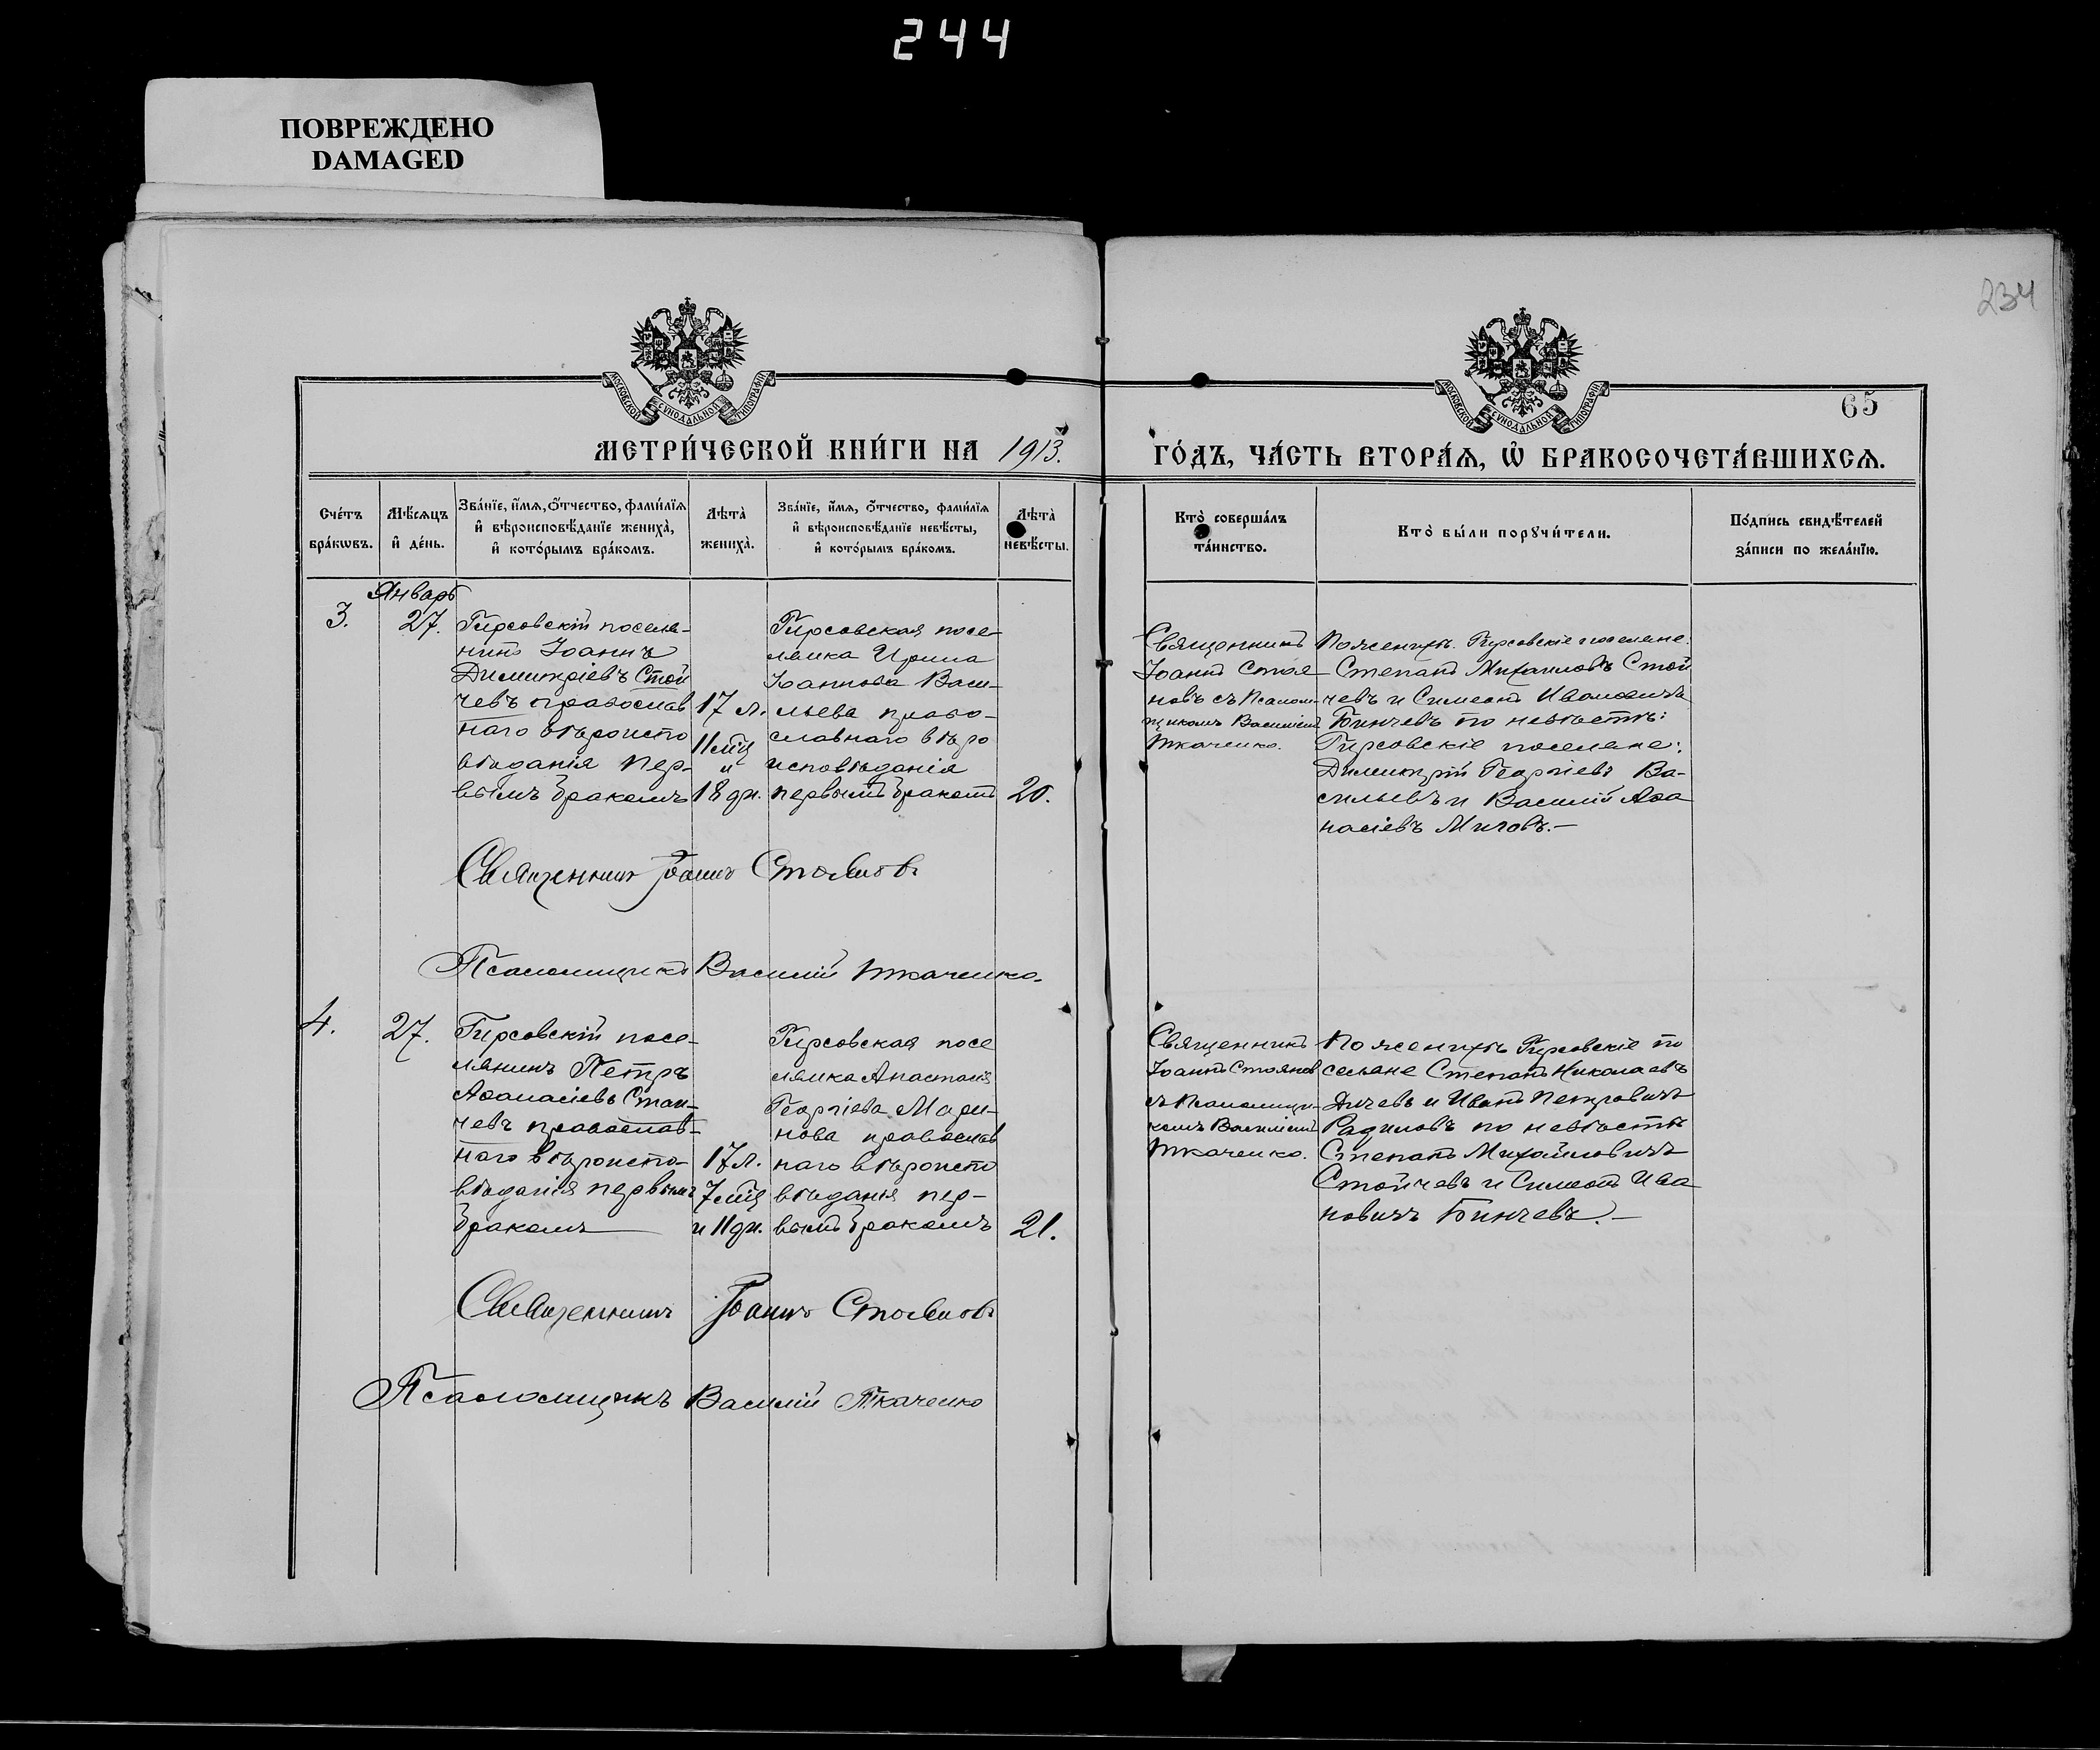 244
ПОВРЕЖДЕНО
DAMAGED
234
65
МОСКОВСКОЙ СУНОДАЛЬНОЙ ТИПОГРАФІИ
МОСКОВСКОЙ СУНОДАЛЬНОЙ ТИПОГРАФІИ
МЕТРИ́ЧЕСКОЙ КНИ́ГИ НА 1913.
ГО́ДЪ, ЧА́СТЬ ВТОРА́Ѧ, Ѽ БРАКОСОЧЕТА́ВШИХСѦ.
Сче́тъ
бра́кѡвъ.
Мѣ́сѧцъ
и҆ де́нь.
Зва́нїе, и҆́мѧ, ѻ҆́тчество, фами́лїѧ
и҆ вѣроисповѣ́данїе жениха̀,
и҆ кото́рымъ бра́комъ.
Лѣта̀
жениха̀.
Зва́нїе, и҆́мѧ, ѻ҆́тчество, фами́лїѧ
и҆ вѣроисповѣ́данїе невѣ́сты,
и҆ кото́рымъ бра́комъ.
Лѣта̀
невѣ́сты.
Кто̀ соверша́лъ
та́инство.
Кто̀ бы́ли порꙋчи́тели.
По́дпись свидѣ́телей
за́писи по жела́нїю.
Январь
3.
27.
Гирсовскій поселя-
нинъ Іоаннъ
Димитріевъ Стой
чевъ православ
наго вѣроиспо
вѣданія пер-
вымъ бракомъ
17 л.
11 мѣц
и
18 дн.
Гирсовская посе-
лянка Ирина
Іоаннова Васи-
льева право-
славнаго вѣро
исповѣданія
первымъ бракомъ
20.
Священникъ
Іоаннъ Стоя
новъ съ Псалом-
щикомъ Василіемъ
Ткаченко.
По женихѣ. Гирсовскіе поселяне:
Степанъ Михаиловъ Стой
чевъ и Симеонъ Ивановичъ
Бинчевъ по невѣстѣ:
Гирсовскіе поселяне:
Димитрій Георгіевъ Ва-
сильевъ и Василій Аѳа
насіевъ Мичовъ.—
Священникъ Іоаннъ Стояновъ
Псаломщикъ Василій Ткаченко.
4.
27.
Гирсовскій посе-
лянинъ Петръ
Аѳанасіевъ Стан-
чевъ православ-
наго вѣроиспо-
вѣданія первымъ
бракомъ
17 л.
7 мѣц
и 11 дн.
Гирсовская посе
лянка Анастасія
Георгіева Мари-
нова православ
наго вѣроиспо
вѣданія пер-
вымъ бракомъ
21.
Священникъ
Іоаннъ Стоянов
съ Псаломщи-
комъ Василіемъ
Ткаченко.
По женихѣ Гирсовскіе по
селяне Степанъ Николаевъ
Дичевъ и Иванъ Петровичъ
Радиловъ по невѣстѣ
Степанъ Михайловичъ
Стойчевъ и Симеонъ Ива
новичъ Бинчевъ.—
Священникъ Іоаннъ Стояновъ
Псаломщикъ Василій Ткаченко